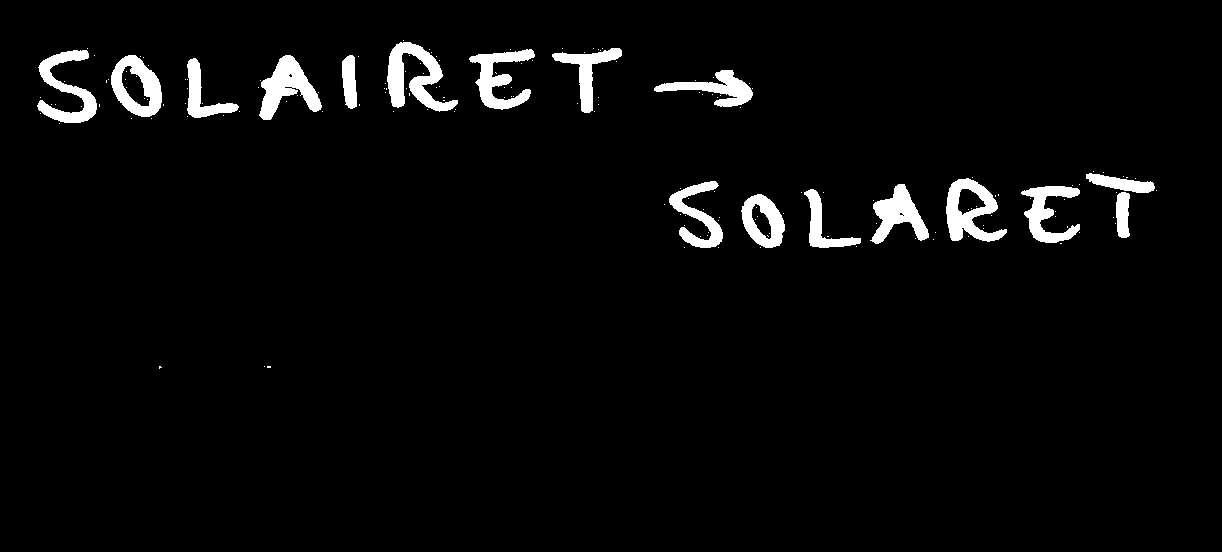 SOLAIRET →
SOLARET